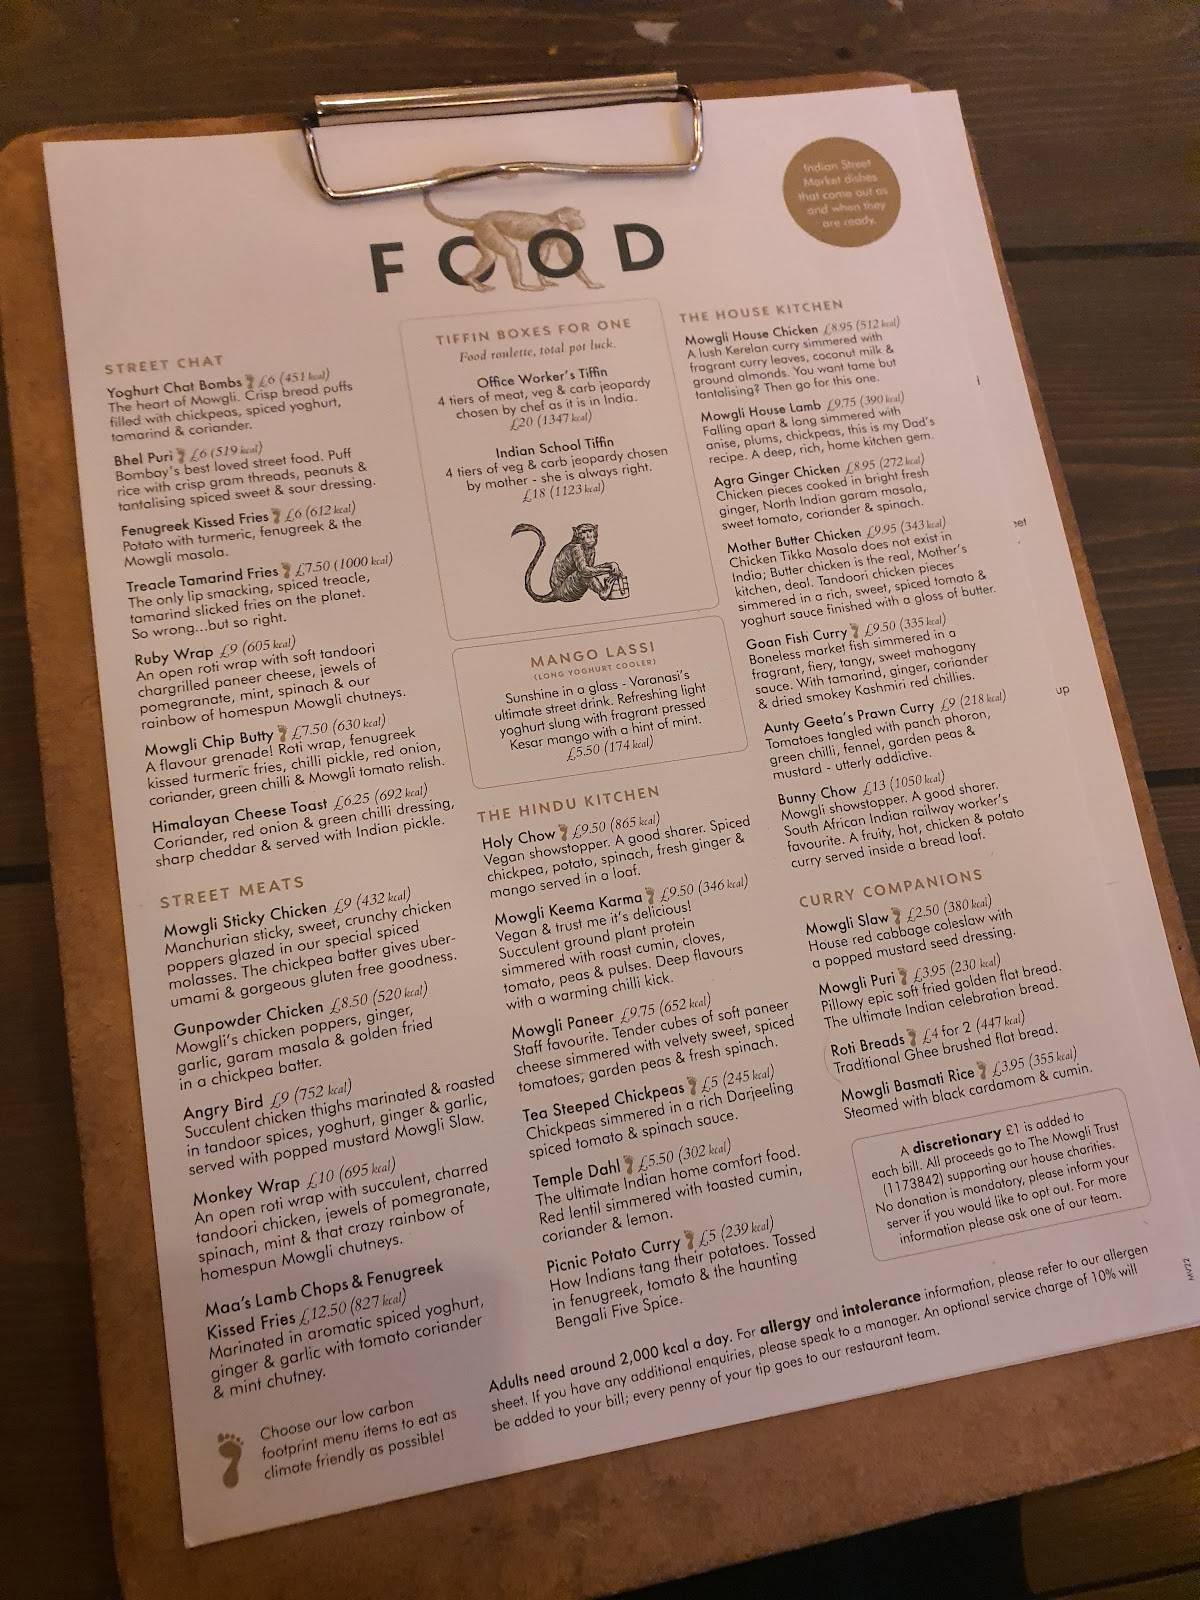 FOOD
Indian Street
Market dishes
that come out as
and when they
are ready.
STREET CHAT
Yoghurt Chat Bombs £6 (451 kcal)
The heart of Mowgli. Crisp bread puffs
filled with chickpeas, spiced yoghurt,
tamarind & coriander.
Bhel Puri £6 (519 kcal)
Bombay's best loved street food. Puff
rice with crisp gram threads, peanuts &
tantalising spiced sweet & sour dressing.
Fenugreek Kissed Fries £6 (612 kcal)
Potato with turmeric, fenugreek & the
Mowgli masala.
Treacle Tamarind Fries £7.50 (1000 kcal)
The only lip smacking, spiced treacle,
tamarind slicked fries on the planet.
So wrong...but so right.
Ruby Wrap £9 (605 kcal)
An open roti wrap with soft tandoori
chargrilled paneer cheese, jewels of
pomegranate, mint, spinach & our
rainbow of homespun Mowgli chutneys.
Mowgli Chip Butty £7.50 (630 kcal)
A flavour grenade! Roti wrap, fenugreek
kissed turmeric fries, chilli pickle, red onion,
coriander, green chilli & Mowgli tomato relish.
Himalayan Cheese Toast £6.25 (692 kcal)
Coriander, red onion & green chilli dressing,
sharp cheddar & served with Indian pickle.
STREET MEATS
Mowgli Sticky Chicken £9 (432 kcal)
Manchurian sticky, sweet, crunchy chicken
poppers glazed in our special spiced
molasses. The chickpea batter gives uber-
umami & gorgeous gluten free goodness.
Gunpowder Chicken £8.50 (520 kcal)
Mowgli's chicken poppers, ginger,
garlic, garam masala & golden fried
in a chickpea batter.
Angry Bird £9 (752 kcal)
Succulent chicken thighs marinated & roasted
in tandoor spices, yoghurt, ginger & garlic,
served with popped mustard Mowgli Slaw.
Monkey Wrap £10 (695 kcal)
An open roti wrap with succulent, charred
tandoori chicken, jewels of pomegranate,
spinach, mint & that crazy rainbow of
homespun Mowgli chutneys.
Maa's Lamb Chops & Fenugreek
Kissed Fries £12.50 (827 kcal)
Marinated in aromatic spiced yoghurt,
ginger & garlic with tomato coriander
& mint chutney.
Choose our low carbon
footprint menu items to eat as
climate friendly as possible!
TIFFIN BOXES FOR ONE
Food roulette, total pot luck.
Office Worker's Tiffin
4 tiers of meat, veg & carb jeopardy
chosen by chef as it is in India.
£20 (1347 kcal)
Indian School Tiffin
4 tiers of veg & carb jeopardy chosen
by mother - she is always right.
£18 (1123 kcal)
MANGO LASSI
(LONG YOGHURT COOLER)
Sunshine in a glass - Varanasi's
ultimate street drink. Refreshing light
yoghurt slung with fragrant pressed
Kesar mango with a hint of mint.
£5.50 (174 kcal)
THE HINDU KITCHEN
Holy Chow £9.50 (865 kcal)
Vegan showstopper. A good sharer. Spiced
chickpea, potato, spinach, fresh ginger &
mango served in a loaf.
Mowgli Keema Karma £9.50 (346 kcal)
Vegan & trust me it's delicious!
Succulent ground plant protein
simmered with roast cumin, cloves,
tomato, peas & pulses. Deep flavours
with a warming chilli kick.
Mowgli Paneer £9.75 (652 kcal)
Staff favourite. Tender cubes of soft paneer
cheese simmered with velvety sweet, spiced
tomatoes, garden peas & fresh spinach.
Tea Steeped Chickpeas £5 (245 kcal)
Chickpeas simmered in a rich Darjeeling
spiced tomato & spinach sauce.
Temple Dahl £5.50 (302 kcal)
The ultimate Indian home comfort food.
Red lentil simmered with toasted cumin,
coriander & lemon.
Picnic Potato Curry £5 (239 kcal)
How Indians tang their potatoes. Tossed
in fenugreek, tomato & the haunting
Bengali Five Spice.
THE HOUSE KITCHEN
Mowgli House Chicken £8.95 (512 kcal)
A lush Kerelan curry simmered with
fragrant curry leaves, coconut milk &
ground almonds. You want tame but
tantalising? Then go for this one.
Mowgli House Lamb £9.75 (390 kcal)
Falling apart & long simmered with
anise, plums, chickpeas, this is my Dad's
recipe. A deep, rich, home kitchen gem.
Agra Ginger Chicken £8.95 (272 kcal)
Chicken pieces cooked in bright fresh
ginger, North Indian garam masala,
sweet tomato, coriander & spinach.
Mother Butter Chicken £9.95 (343 kcal)
Chicken Tikka Masala does not exist in
India; Butter chicken is the real, Mother's
kitchen, deal. Tandoori chicken pieces
simmered in a rich, sweet, spiced tomato &
yoghurt sauce finished with a gloss of butter.
Goan Fish Curry £9.50 (335 kcal)
Boneless market fish simmered in a
fragrant, fiery, tangy, sweet mahogany
sauce. With tamarind, ginger, coriander
& dried smokey Kashmiri red chillies.
Aunty Geeta's Prawn Curry £9 (218 kcal)
Tomatoes tangled with panch phoron,
green chilli, fennel, garden peas &
mustard - utterly addictive.
Bunny Chow £13 (1050 kcal)
Mowgli showstopper. A good sharer.
South African Indian railway worker's
favourite. A fruity, hot, chicken & potato
curry served inside a bread loaf.
CURRY COMPANIONS
Mowgli Slaw £2.50 (380 kcal)
House red cabbage coleslaw with
a popped mustard seed dressing.
Mowgli Puri £3.95 (230 kcal)
Pillowy epic soft fried golden flat bread.
The ultimate Indian celebration bread.
Roti Breads £4 for 2 (447 kcal)
Traditional Ghee brushed flat bread.
Mowgli Basmati Rice £3.95 (355 kcal)
Steamed with black cardamom & cumin.
A discretionary £1 is added to
each bill. All proceeds go to The Mowgli Trust
(1173842) supporting our house charities.
No donation is mandatory, please inform your
server if you would like to opt out. For more
information please ask one of our team.
Adults need around 2,000 kcal a day. For allergy and intolerance information, please refer to our allergen
sheet. If you have any additional enquiries, please speak to a manager. An optional service charge of 10% will
be added to your bill; every penny of your tip goes to our restaurant team.
MV22
up